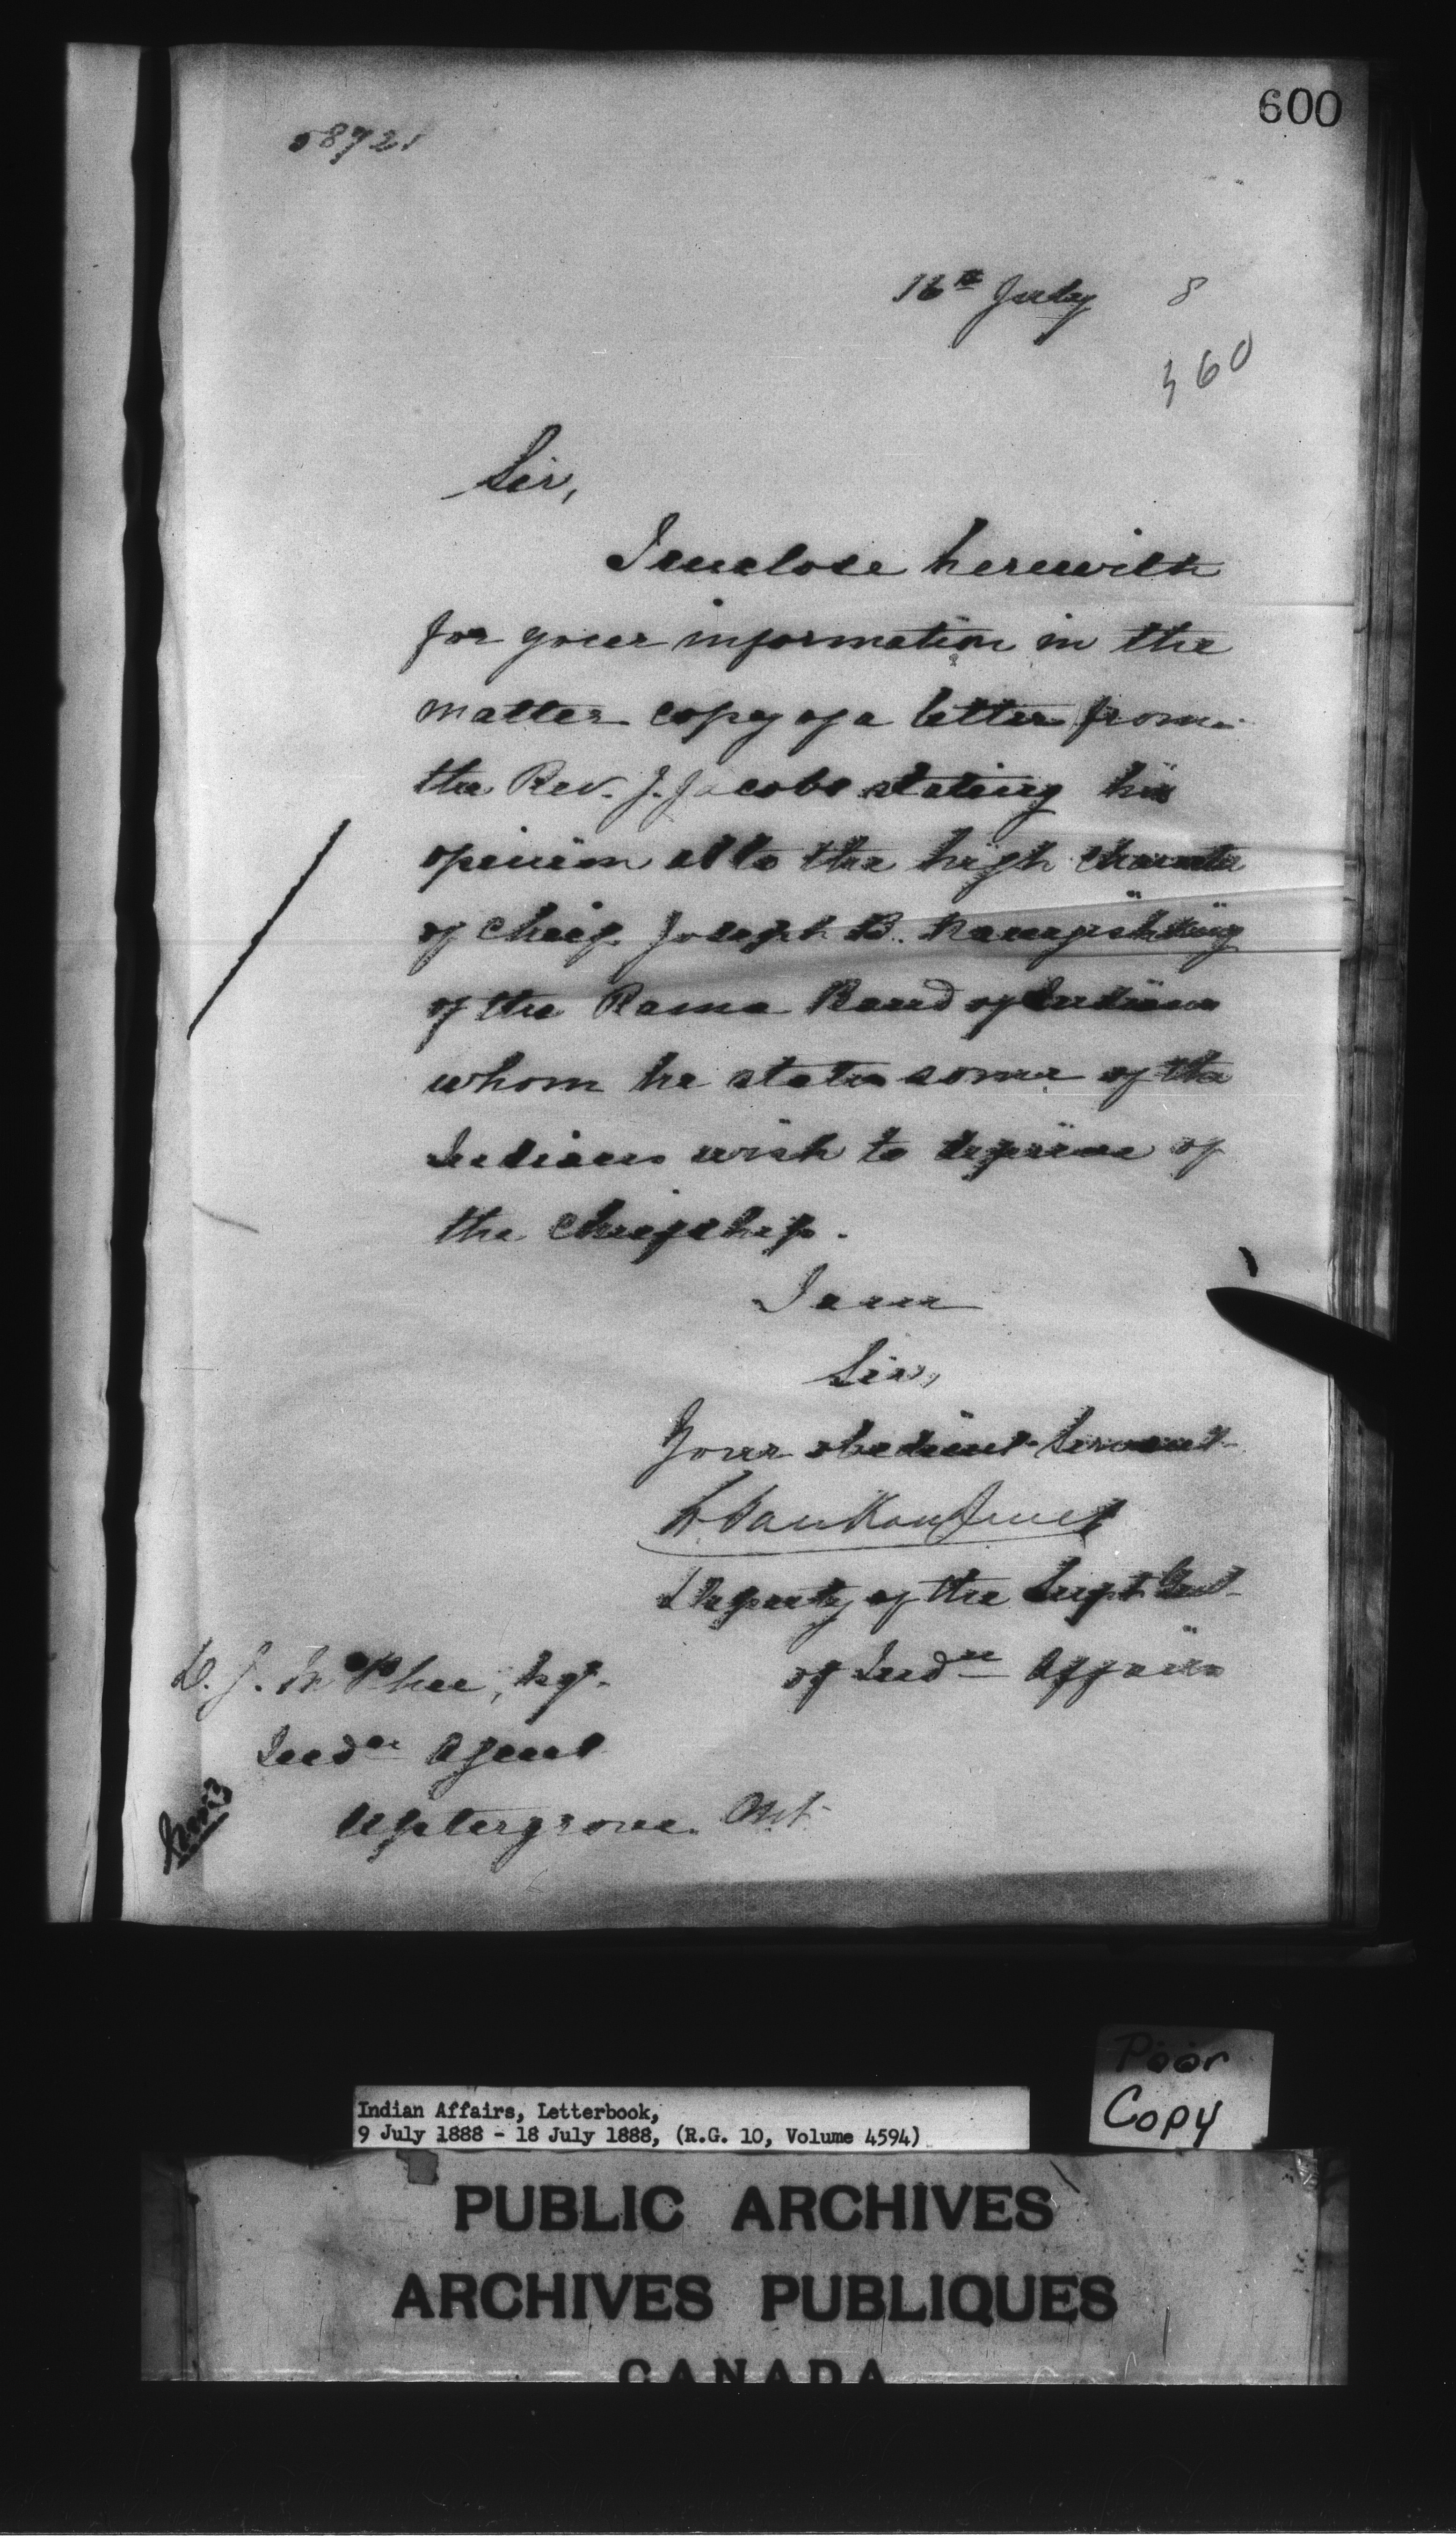 600
58721
16th July 8
360
Sir,
I enclose herewith
for your information in the
matter copy of a letter from
the Rev. J. Jacobs stating his
opinion as to the high character
of Chief Joseph B.
of the Rama Band of Indians
whom he states some of the
Indians wish to deprive of
the Chiefship.
I am
Sir,
Your obedient Servant
L. VanKoughnet
Deputy of the Supt. Genl
of Indn Affairs
D. J. McPhee, Esq.
Indn Agent
Uptergrove. Ont
Poor
Copy
Indian Affairs, Letterbook,
9 July 1888 - 18 July 1888, (R.G. 10, Volume 4594)
PUBLIC ARCHIVES
ARCHIVES PUBLIQUES
CANADA